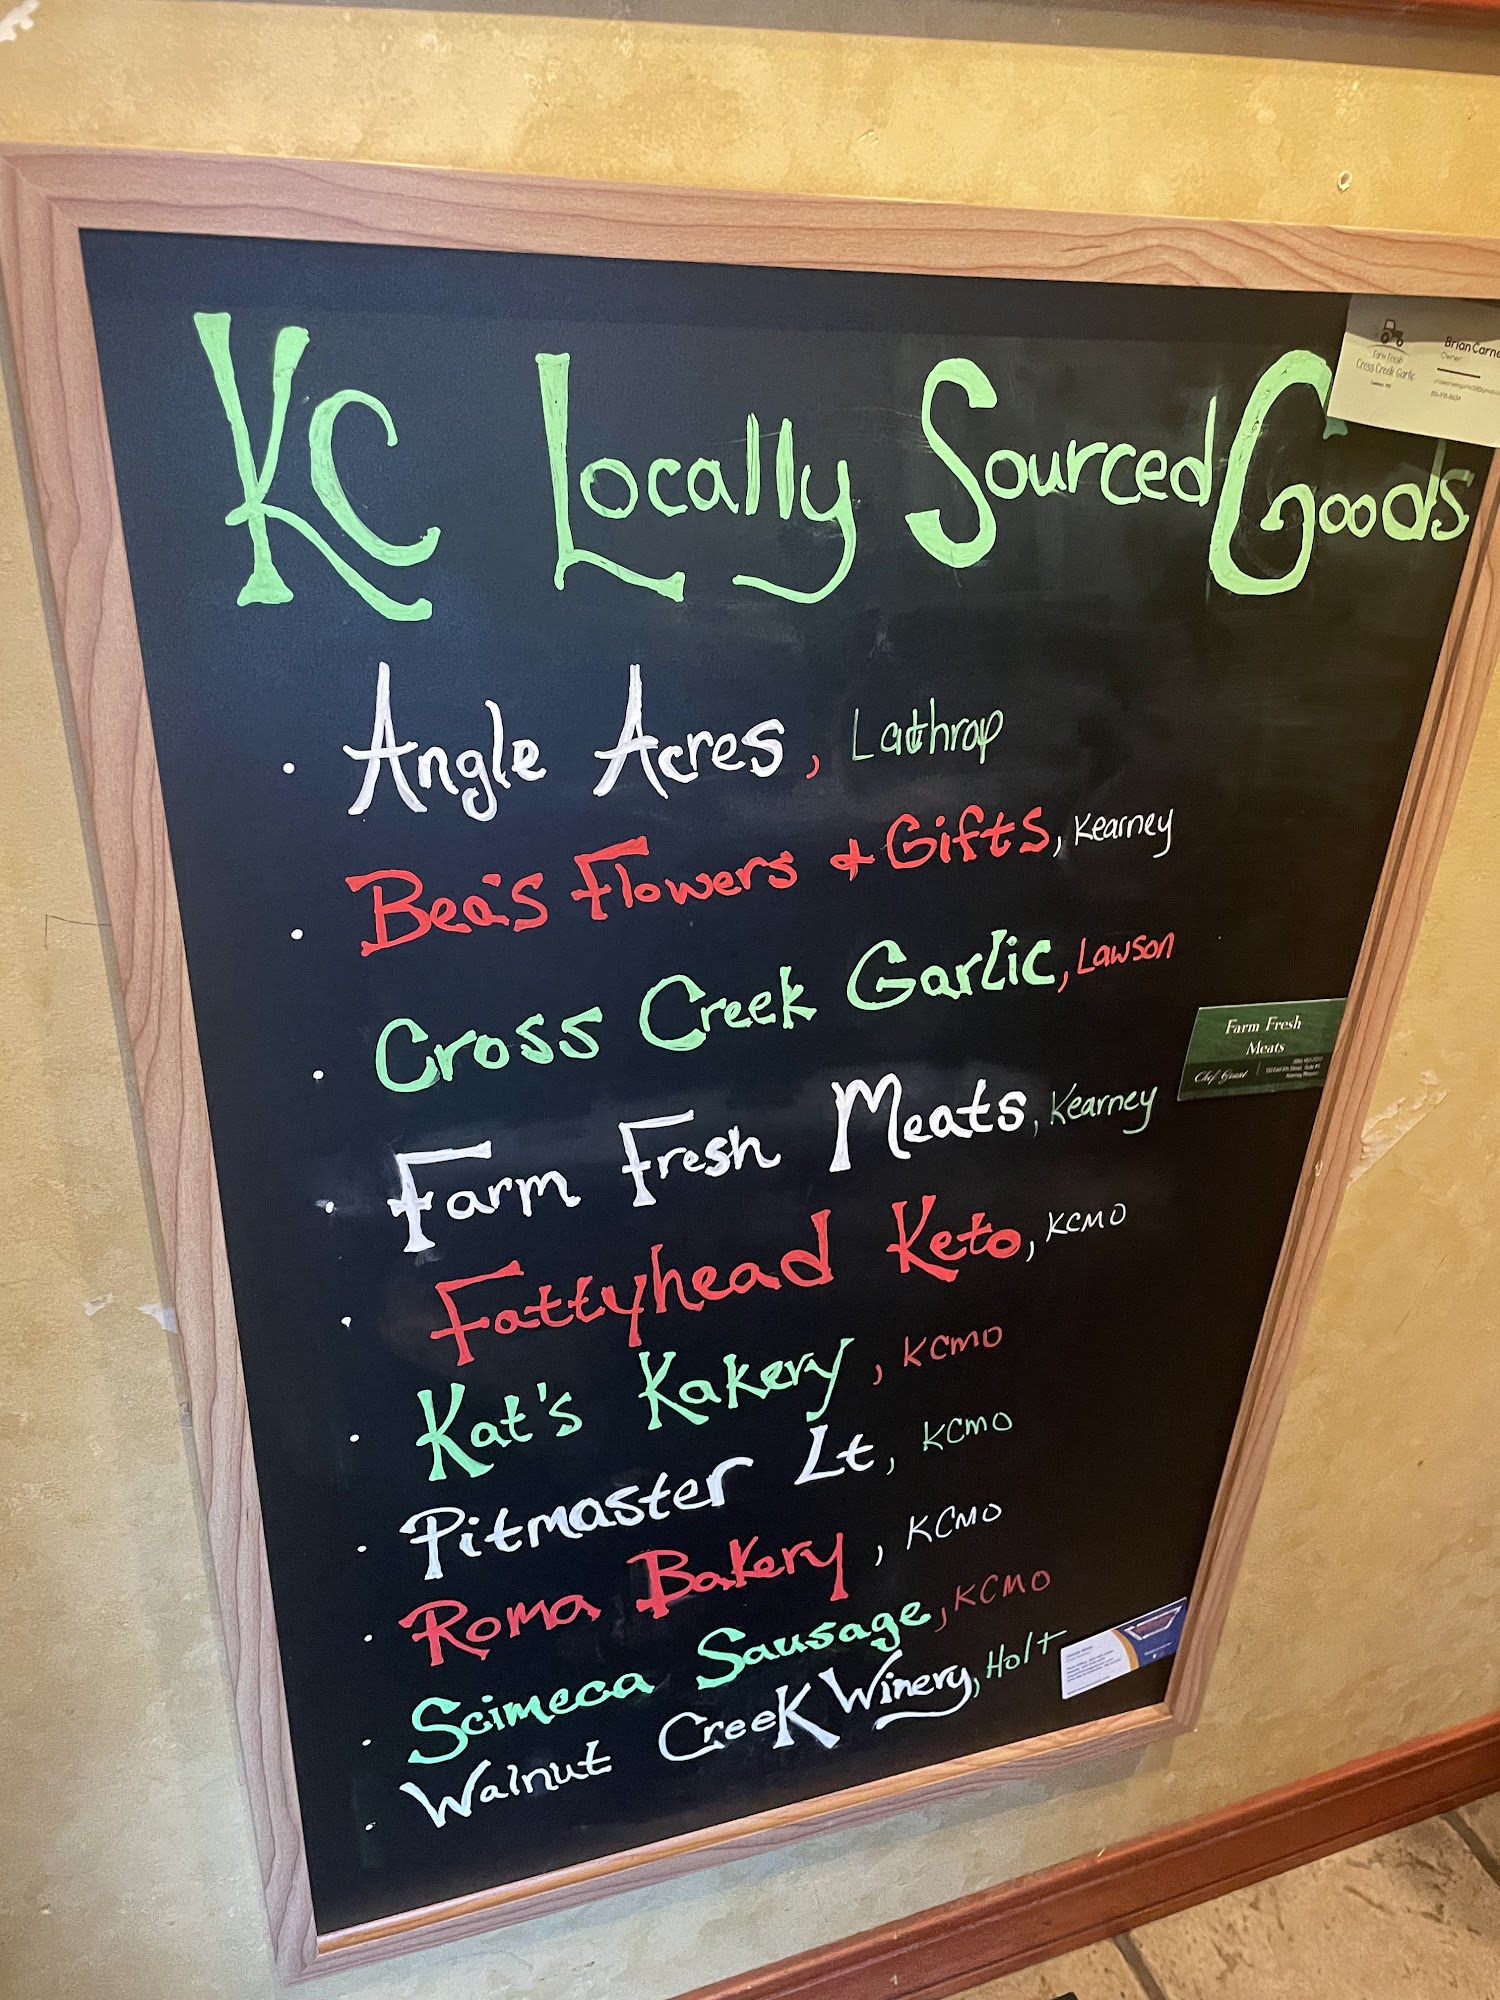 KC Locally Sourced Goods
• Angle Acres, Lathrop
• Bea's Flowers & Gifts, Kearney
• Cross Creek Garlic, Lawson
• Farm Fresh Meats, Kearney
• Fattyhead Keto, KCMO
• Kat's Kakery, KCMO
• Pitmaster Lt, KCMO
• Roma Bakery, KCMO
• Scimeca Sausage, KCMO
• Walnut Creek Winery, Holt
Farm Fresh
Cross Creek Garlic
Lawson, MO
Brian Carne
Owner
Farm Fresh
Meats
Chef Grant